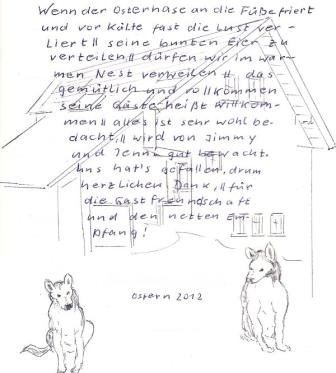 Wenn der Osterhase an die Füße friert
und vor Kälte fast die Lust ver-
liert || seine bunten Eier zu
verteilen || dürfen wir im war-
men Nest verweilen || das
gemütlich und vollkommen
seine Gäste heißt willkom-
men || alles ist sehr wohl be-
dacht, || wird von Jimmy
und Jenni gut bewacht.
Uns hat's gefallen, drum
herzlichen Dank, || für
die Gastfreundschaft
und den netten Em-
pfang!
Ostern 2012